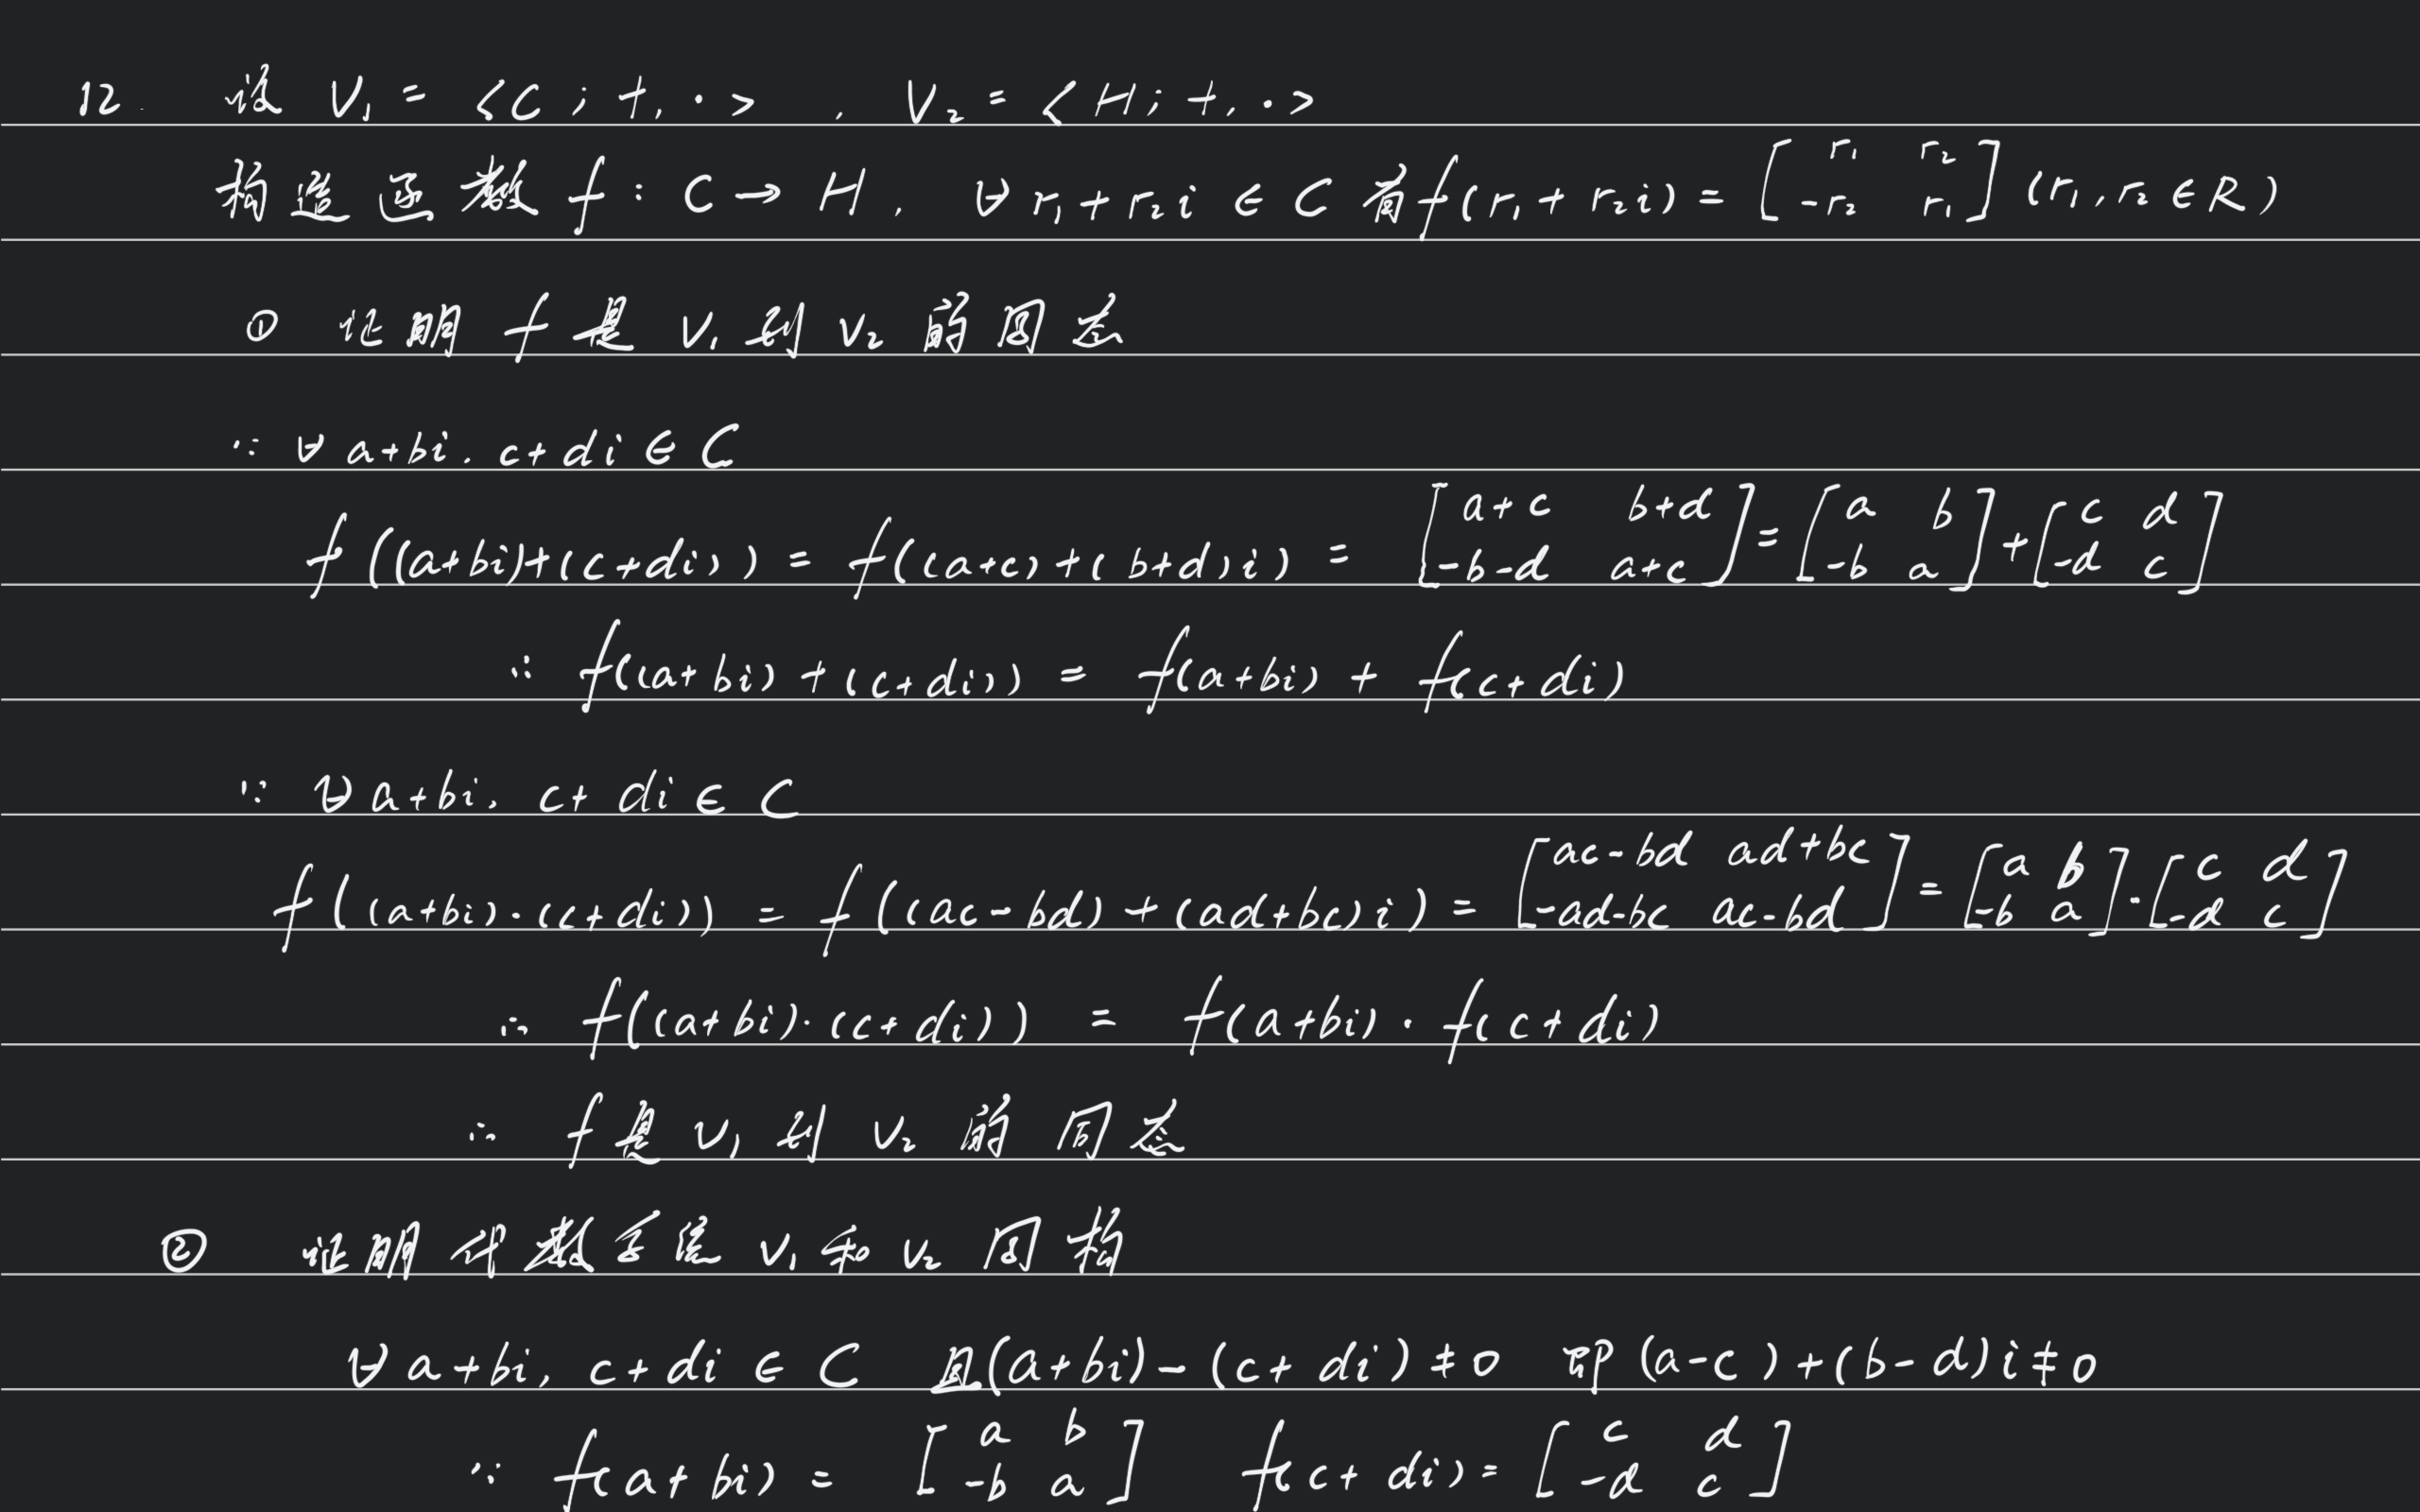 12. 设 V₁ = <C ; +, ·> , V₂ = <H ; +, ·>
构造函数 f : C → H , ∀ r₁ + r₂i ∈ C 有 f(r₁ + r₂i) = [ r₁ r₂ ; -r₂ r₁ ] (r₁, r₂ ∈ R)
① 证明 f 是 V₁ 到 V₂ 的同态
∵ ∀ a+bi , c+di ∈ C
f((a+bi)+(c+di)) = f((a+c)+(b+d)i) = [ a+c b+d ; -b-d a+c ] = [ a b ; -b a ] + [ c d ; -d c ]
∴ f((a+bi)+(c+di)) = f(a+bi) + f(c+di)
∵ ∀ a+bi , c+di ∈ C
f((a+bi)·(c+di)) = f((ac-bd)+(ad+bc)i) = [ ac-bd ad+bc ; -ad-bc ac-bd ] = [ a b ; -b a ] · [ c d ; -d c ]
∴ f((a+bi)·(c+di)) = f(a+bi) · f(c+di)
∴ f 是 V₁ 到 V₂ 的同态
② 证明代数系统 V₁ 和 V₂ 同构
∀ a+bi , c+di ∈ C 且(a+bi)-(c+di) ≠ 0 即 (a-c)+(b-d)i ≠ 0
∵ f(a+bi) = [ a b ; -b a ] f(c+di) = [ c d ; -d c ]